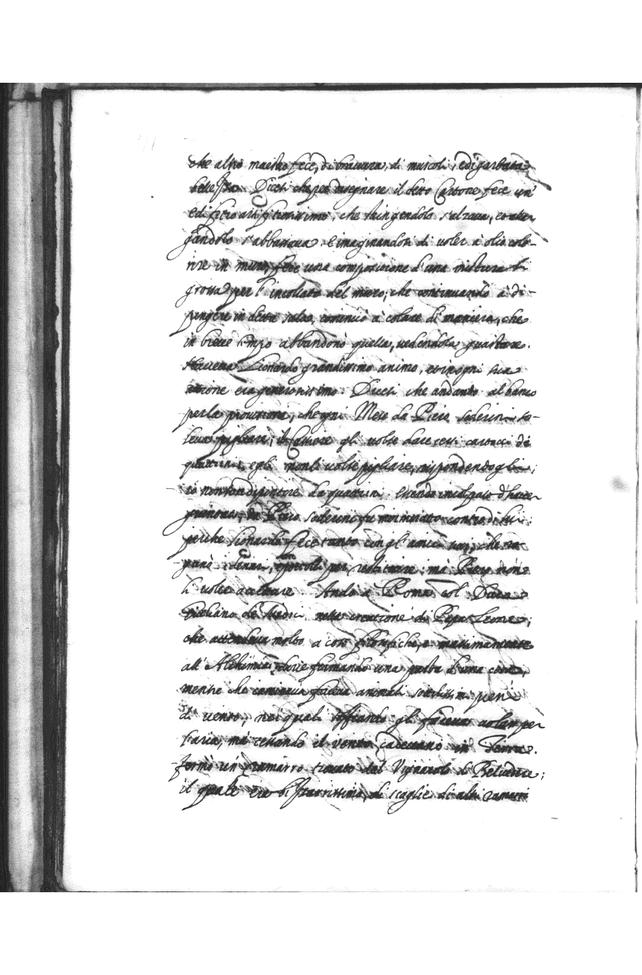 che altro maestro fece, di bravura, di muscoli, et di garbata
bellezza. Dicesi che per disegnare il detto Cartone fece un
edifitio artifitiosissimo, che stringendolo s'alzava, et alar-
gandolo s'abbassava. E imaginandosi di voler a olio colo-
rire in muro, fece una compositione d'una mistura sì
grossa per l'incollato del muro, che continuando a di-
pingere in detta sala, cominciò a colare di maniera, che
in breve tempo abbandonò quella, vedendola guastare.
Haveva Lionardo grandissimo animo, et in ogni sua
attione era generosissimo. Dicesi che andando al banco
per la provisione, che ogni Mese da Piero Soderini so-
leva pigliare, il Cassiere gli volse dare certi cartocci di
quattrini, egli non li volse pigliare, rispondendogli;
io non son dipintore da quattrini. Essendo incolpato d'haver
Piero Soderini fu mormorato contro di lui;
perche Lionardo fece tanto con gl'amici suoi, che ra-
gunò i denari, per restituire; ma Piero non
li volse accettare. Andò a Roma col Duca
Giuliano de Medici nella creatione di Papa Leone;
che attendeva molto a cose filosofiche, e massimamente
all'Alchimia; dove formando una pasta d'una cera,
mentre che caminava faceva animali sottilissimi pieni
di vento, nei quali soffiando gli faceva volar per
l'aria, ma cessando il vento cadevano in terra.
fermò un ramarro trovato dal Vignarolo di Belvedere;
il quale era bizzarrissimo, di scaglie di altri ramarri